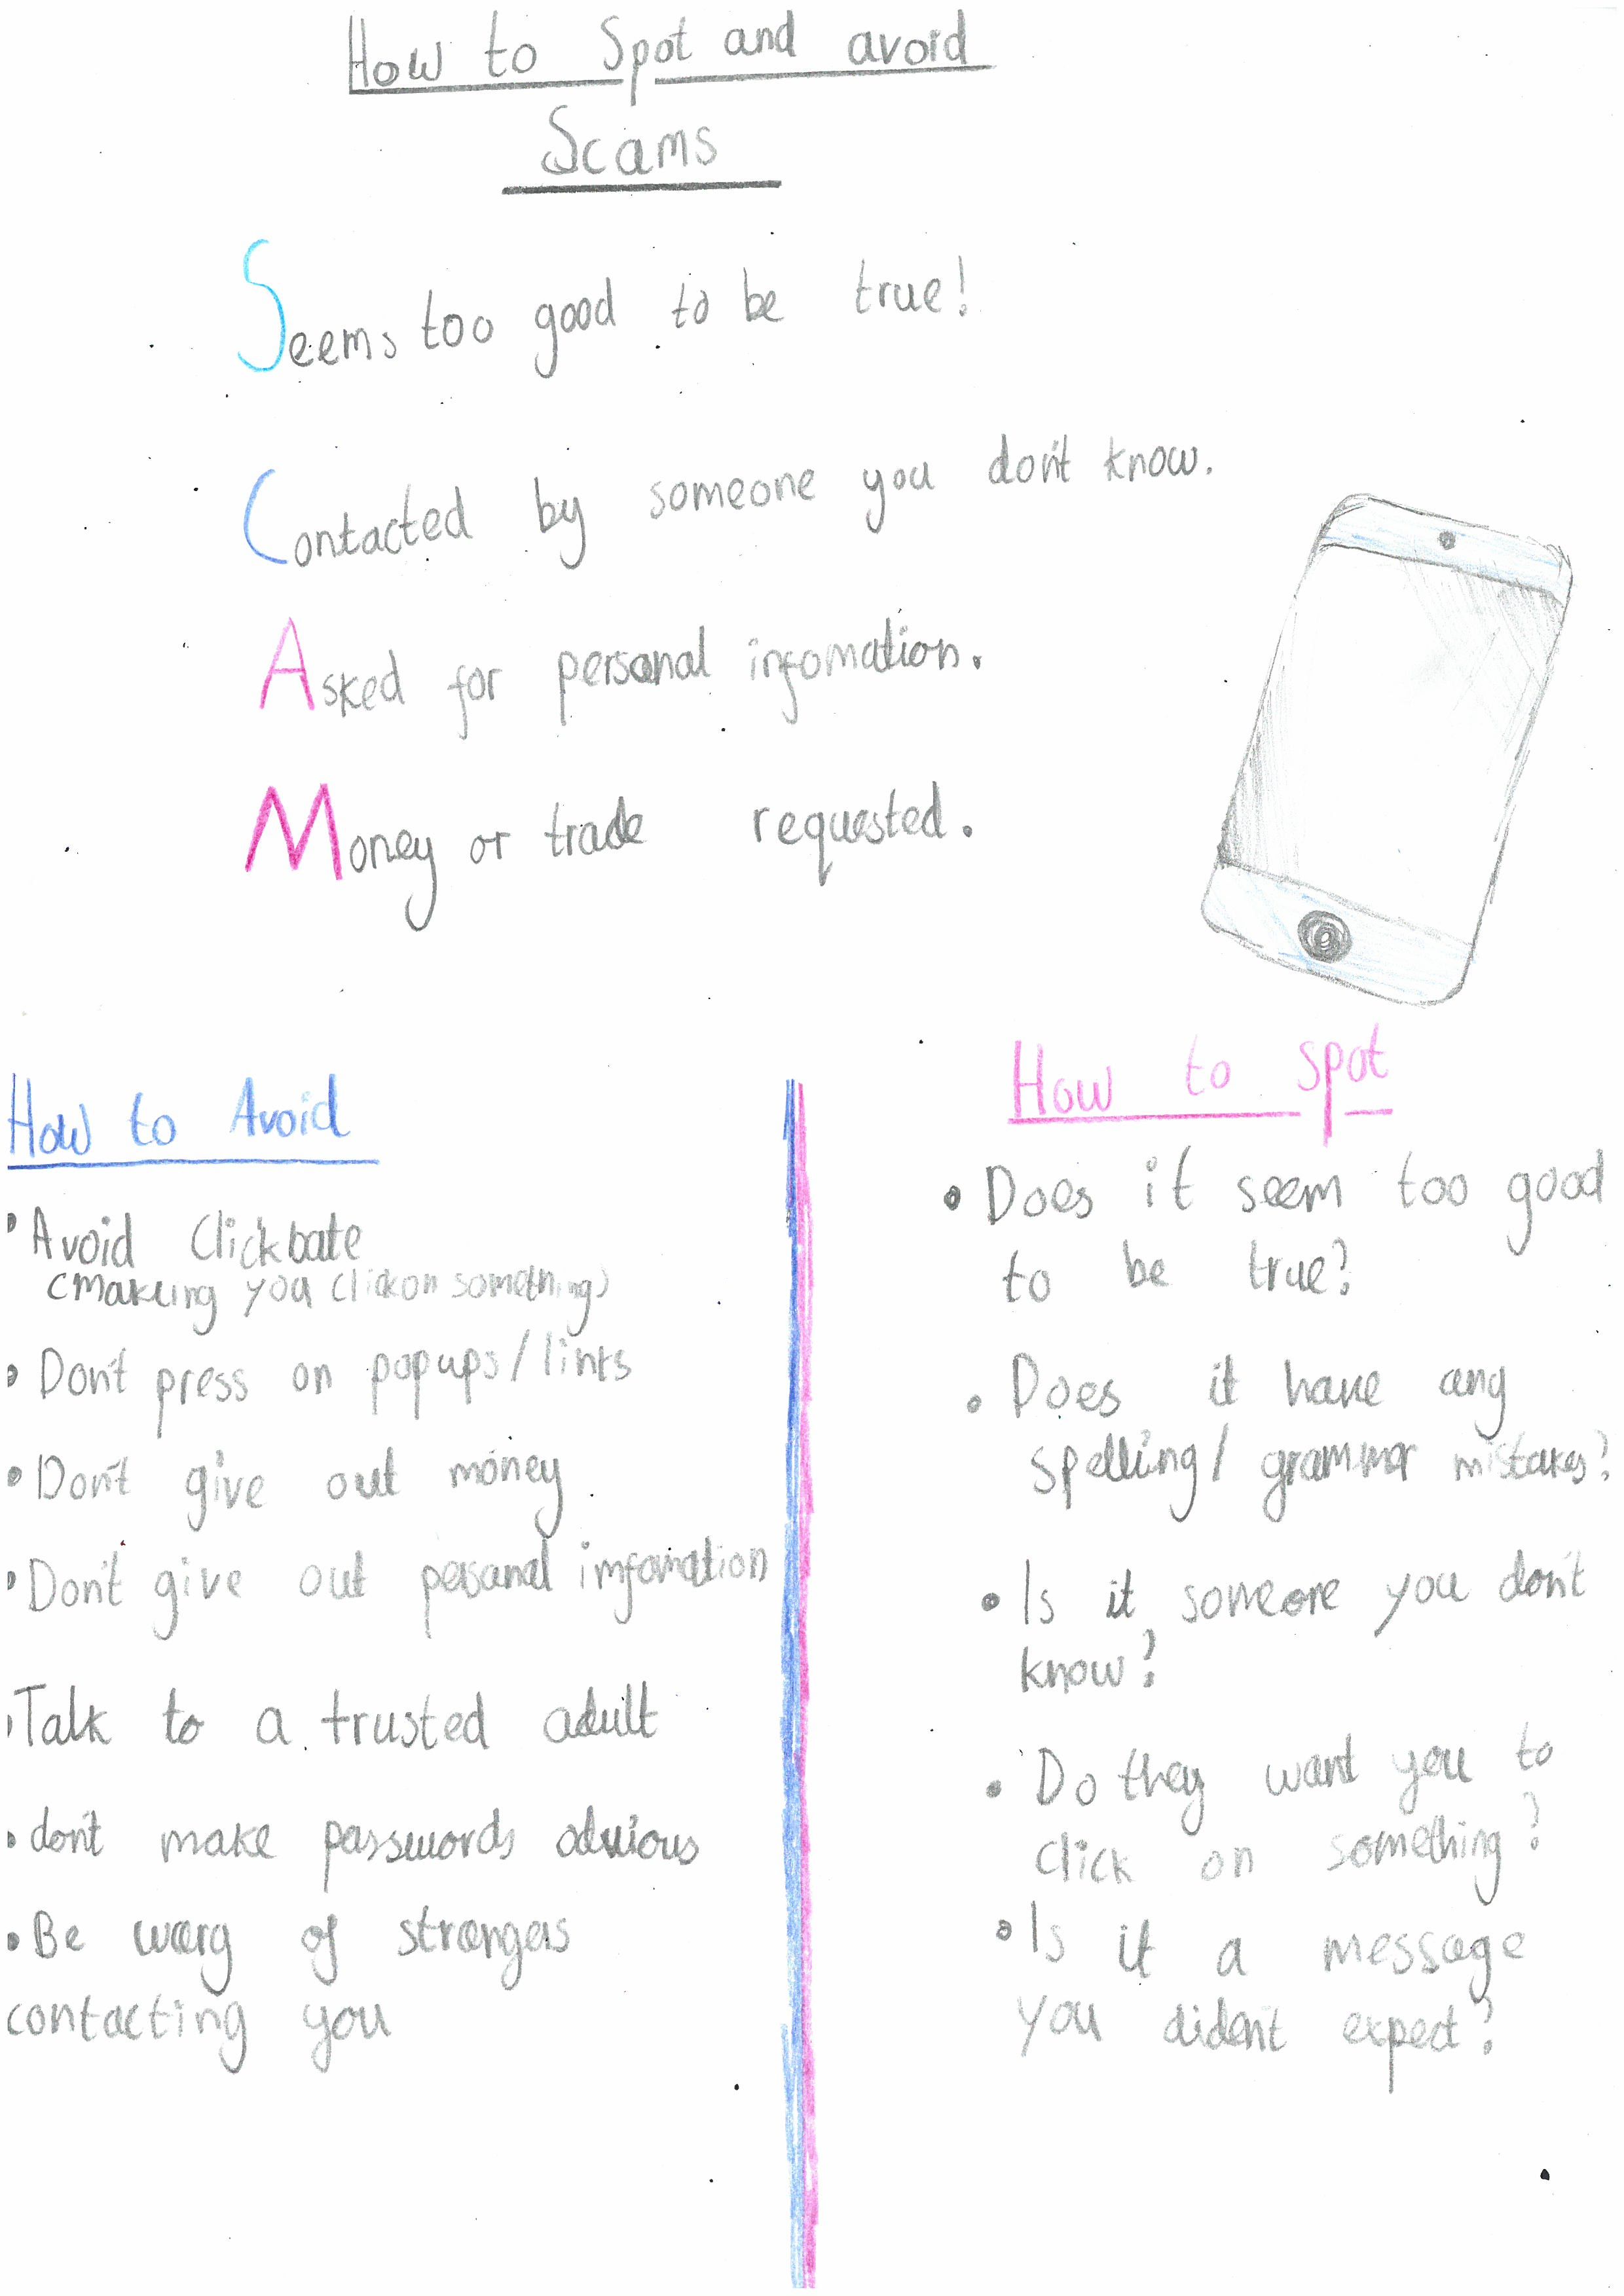 How to Spot and avoid
Scams
Seems too good to be true!
Contacted by someone you don't know.
Asked for personal infomation.
Money or trade requested.
How to Avoid
• Avoid Clickbate
(Making you click on something)
• Don't press on popups/links
• Don't give out money
• Don't give out personal imfomation
• Talk to a trusted adult
• don't make passwords obvious
• Be wary of strangers
contacting you
How to spot
• Does it seem too good
to be true?
• Does it have any
spelling/grammar mistakes?
• Is it someone you don't
know?
• Do they want you to
click on something?
• Is it a message
you dident expect?